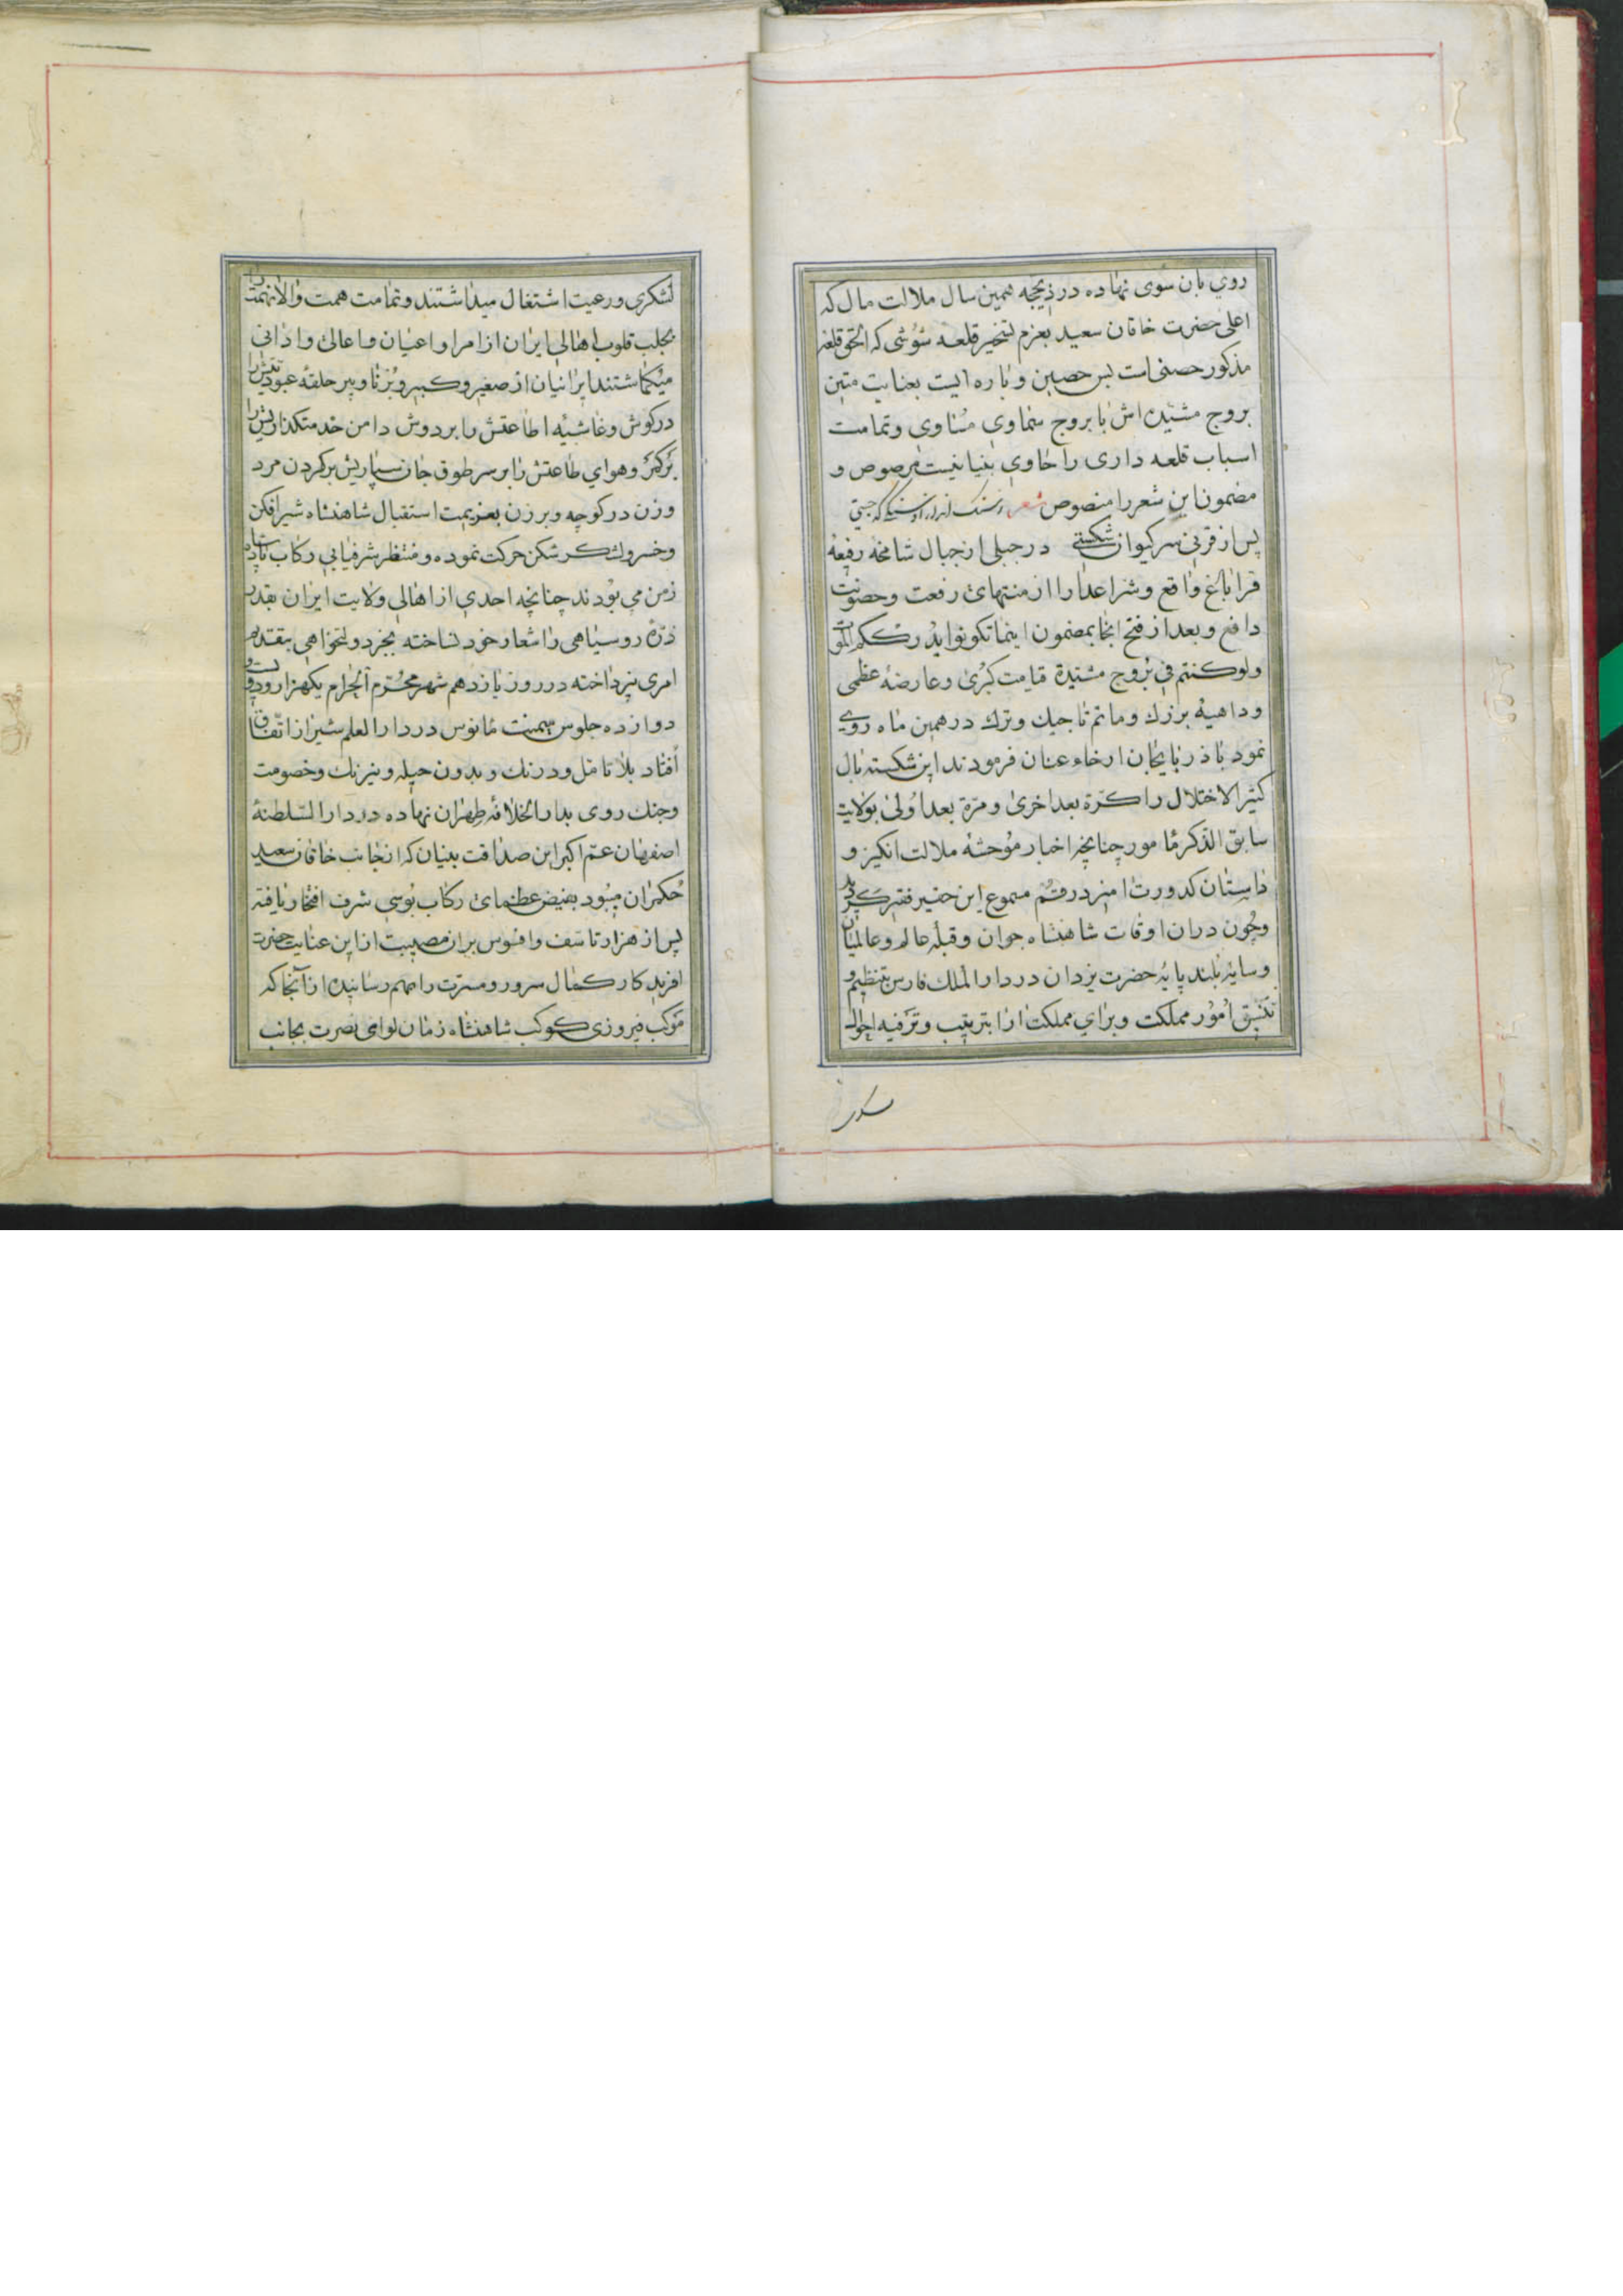 روی بان سوی نهاده در ذیحجه همین سال ملالت مال که
اعلی حضرت خاقان سعید بعزم تسخیر قلعه شوشی که الحق قلعه
مذکور حصنی است بس حصین و باره ایست بغایت متین
بروج مشیده اش با بروج سماوی مساوی و تمامت
اسباب قلعه داری را حاوی بنیانیست مرصوص و
مضمون این شعر را منصوص شعر
پس از قرنی سر کیوان شکستی در جبلی از جبال شامخه رفیعه
قراباغ واقع و شر اعدا را از منتهای رفعت و حصونت
دافع و بعد از فتح انجا بمضمون اینما تکونوا یدرککم الموت
ولو کنتم فی بروج مشیدة قیامت کبری و عارضه عظمی
و داهیه بزرك و ماتم تاجیك و ترك در همین ماه روی
نمود باذربایجان ارخاء عنان فرمودند این شکسته بال
کثیر الاختلال را کرة بعد اخری و مرة بعد اولی بولایت
سابق الذکر مامور چنانچه اخبار موحشه ملالت انکیز و
داستان کدورت امیز در قم مسموع این حقیر فقیر کردید
و چون دران اوقات شاهنشاه جوان و قبله عالم و عالمیان
و سایه بلند پایه حضرت یزدان در دار الملك فارس بتنظیم و
تنسیق امور مملکت و برای مملکت ارا بترتیب و ترفیه احوال
لشکری
لشکری و رعیت اشتغال میداشتند و تمامت همت والا نهمت را
بجلب قلوب اهالی ایران از امرا و اعیان و اعالی و ادانی
میکماشتند ایرانیان از صغیر و کبیر و برنا و پیر حلقه عبودیتش را
در کوش و غاشیه اطاعتش را بر دوش دامن خدمتکذاریش را
بر کمر و هوای طاعتش را بر سر طوق جان سپاریش بر کردن مرد
و زن در کوچه و برزن بعزیمت استقبال شاهنشاه شیر افکن
و خسرو لشکر شکن حرکت نموده و منتظر شرفیابی رکاب
زمن می بودند چنانچه احدی از اهالی ولایت ایران بقدر
ذره روسیاهی را شعار خود نساخته بجز دولتخواهی بتقدیم
امری نپرداخته در روز یازدهم شهر محرم الحرام یکهزار و دویست و
دوازده جلوس میمنت مانوس در دار العلم شیراز اتفاق
افتاد بلا تامل و درنك و بدون حیله و نیرنك و خصومت
و جنك روی بدار الخلافه طهران نهاده در دار السلطنه
اصفهان عم اکبر این صداقت بنیان که از جانب خاقان سعید
حکمران میبود بفیض عظمای رکاب بوسی شرف افتخار یافته
پس از هزار تاسف و افسوس بران مصیبت از این عنایت حضرت
افریدکار کمال سرور و مسرت را بهم رسانیده از آنجا که
موکب فیروزی کوکب شاهنشاه زمان لوای نصرت بجانب